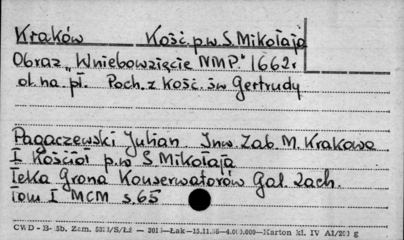 Kraków Kość. p.w. S. Mikołaja
Obraz „Wniebowzięcie NMP." 1662r
ol. na pł. Poch. z Kość. św Gertrudy
Pagaczewski Julian. Inw. Zab. M. Krakowa
I Kościoł p.w S Mikołaja
Teka Grona Konserwatorów Gal. Zach.
tom I MCM s. 65
CWD - B- 5b. Zam.